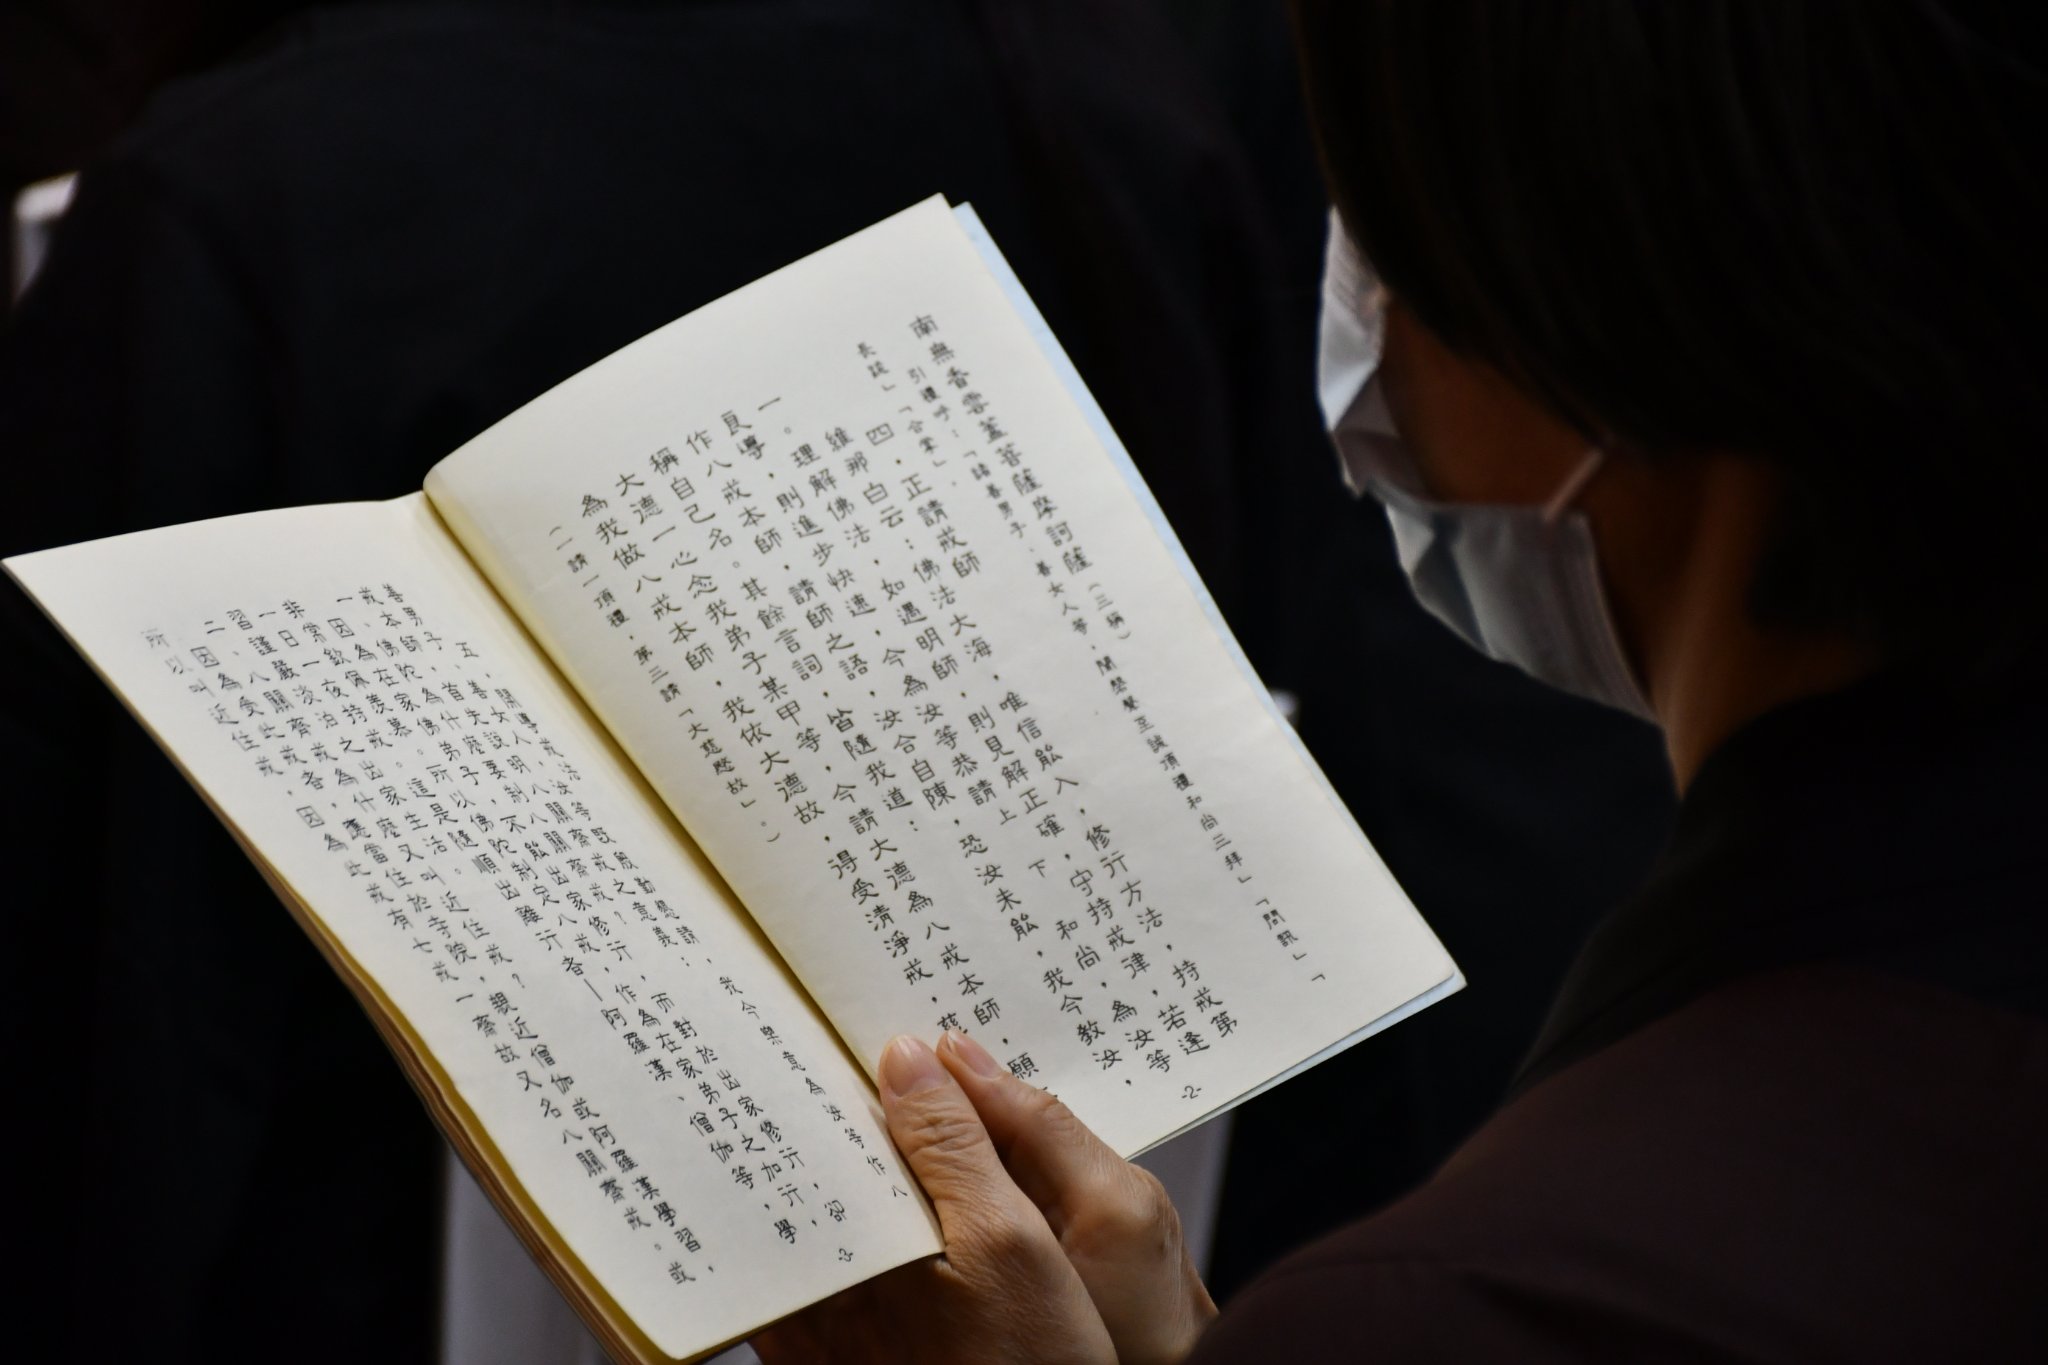 南無香雲蓋菩薩摩訶薩(三稱)
引禮呼:「諸善男子、善女人等,聞磬聲至誠頂禮和尚三拜」「問訊」「
長跪」「合掌」。
四,正請戒師
維那白云:佛法大海,唯信能入,修行方法,持戒第
一。理解佛法,如遇明師,則見解正確,守持戒律,若逢
良導,則進步快速,今為汝等恭請上 下 和尚,為汝等
作八戒本師,請師之語,汝合自陳,恐汝未能,我今教汝,
稱自己名。其餘言詞,皆隨我道:
大德一心念我弟子某甲等,今請大德為八戒本師,願
為我做八戒本師,我依大德故,得受清淨戒,慈
(一請一頂禮,第三請「大慈愍故」。)
-2-
五,開導戒法
善男子,善女人,汝等既殷勤懇請,我今樂意為汝等作八
戒本師,首先說明八關齋戒之意義:
一、佛陀為什麼要制八關齋戒?
因為在家弟子,不能出家修行,而對於出家修行,卻
所以佛陀制定八戒,作為在家弟子之加行,學
隨順出離行者—阿羅漢、僧伽等,
二、為什麼又叫近住戒?
應當住於寺院,親近僧伽或阿羅漢學習,或
所以叫近住戒,因為此戒有七戒一齋故又名八關齋戒。
-3-